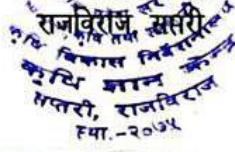 राजविराज सप्तरी
कृषि विकास निर्देशनालय
कृषि ज्ञान केन्द्र
सप्तरी, राजविराज
स्था.-२०७५